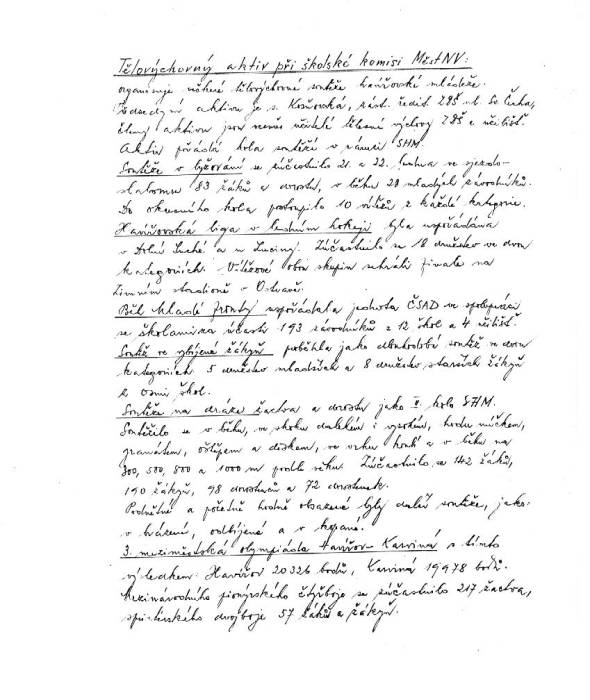 Tělovýchovný aktiv při školské komisi MěstNV:
organizuje různé tělovýchovné soutěže havířovské mládeže.
Předsedkyní aktivu je s. zást. ředit. ZDŠ
členy aktivu jsou učitelé tělesné výchovy ZDŠ a učilišť.
Aktiv pořádá kola soutěží v rámci SHM.
Soutěže v lyžování se zúčastnilo 21. a 22. ledna ve sjezdo-
slalomu 83 žáků a dorostu, v běhu 28 mladých závodníků.
Do okresního kola postoupilo 10 vítězů z každé kategorie.
Havířovská liga v ledním hokeji byla uspořádána
v Dolní Suché a u Lučiny. Zúčastnilo se 18 družstev ve dvou
kategoriích. Vítězové obou skupin sehráli finále na
zimním stadioně v Ostravě.
Běh Mladé fronty uspořádala jednota ČSAD ve spolupráci
se školami za účasti 193 závodníků z 12 škol a 4 učilišť.
Soutěž ve vybíjené žákyň proběhla jako dlouhodobá soutěž ve dvou
kategoriích 5 družstev mladších a 8 družstev starších žákyň
z osmi škol.
Soutěže na dráze žactva a dorostu jako II. kolo SHM.
Soutěžilo se v běhu, ve skoku dalekém i vysokém, hodu míčkem,
granátem, oštěpem a diskem, ve vrhu koulí a v běhu na
300, 500, 800 a 1000 m podle věku. Zúčastnilo se 142 žáků,
190 žákyň, 98 dorostenců a 72 dorostenek.
Podnětné a početně hodně obsazené byly další soutěže, jako
v házené, odbíjené a v kopané.
3. meziměstská olympiáda Havířov-Karviná s tímto
výsledkem: Havířov 20 326 bodů, Karviná 19 978 bodů.
Mezinárodního pionýrského čtyřboje se zúčastnilo 217 žactva,
dvojboje 57 žáků a žákyň.